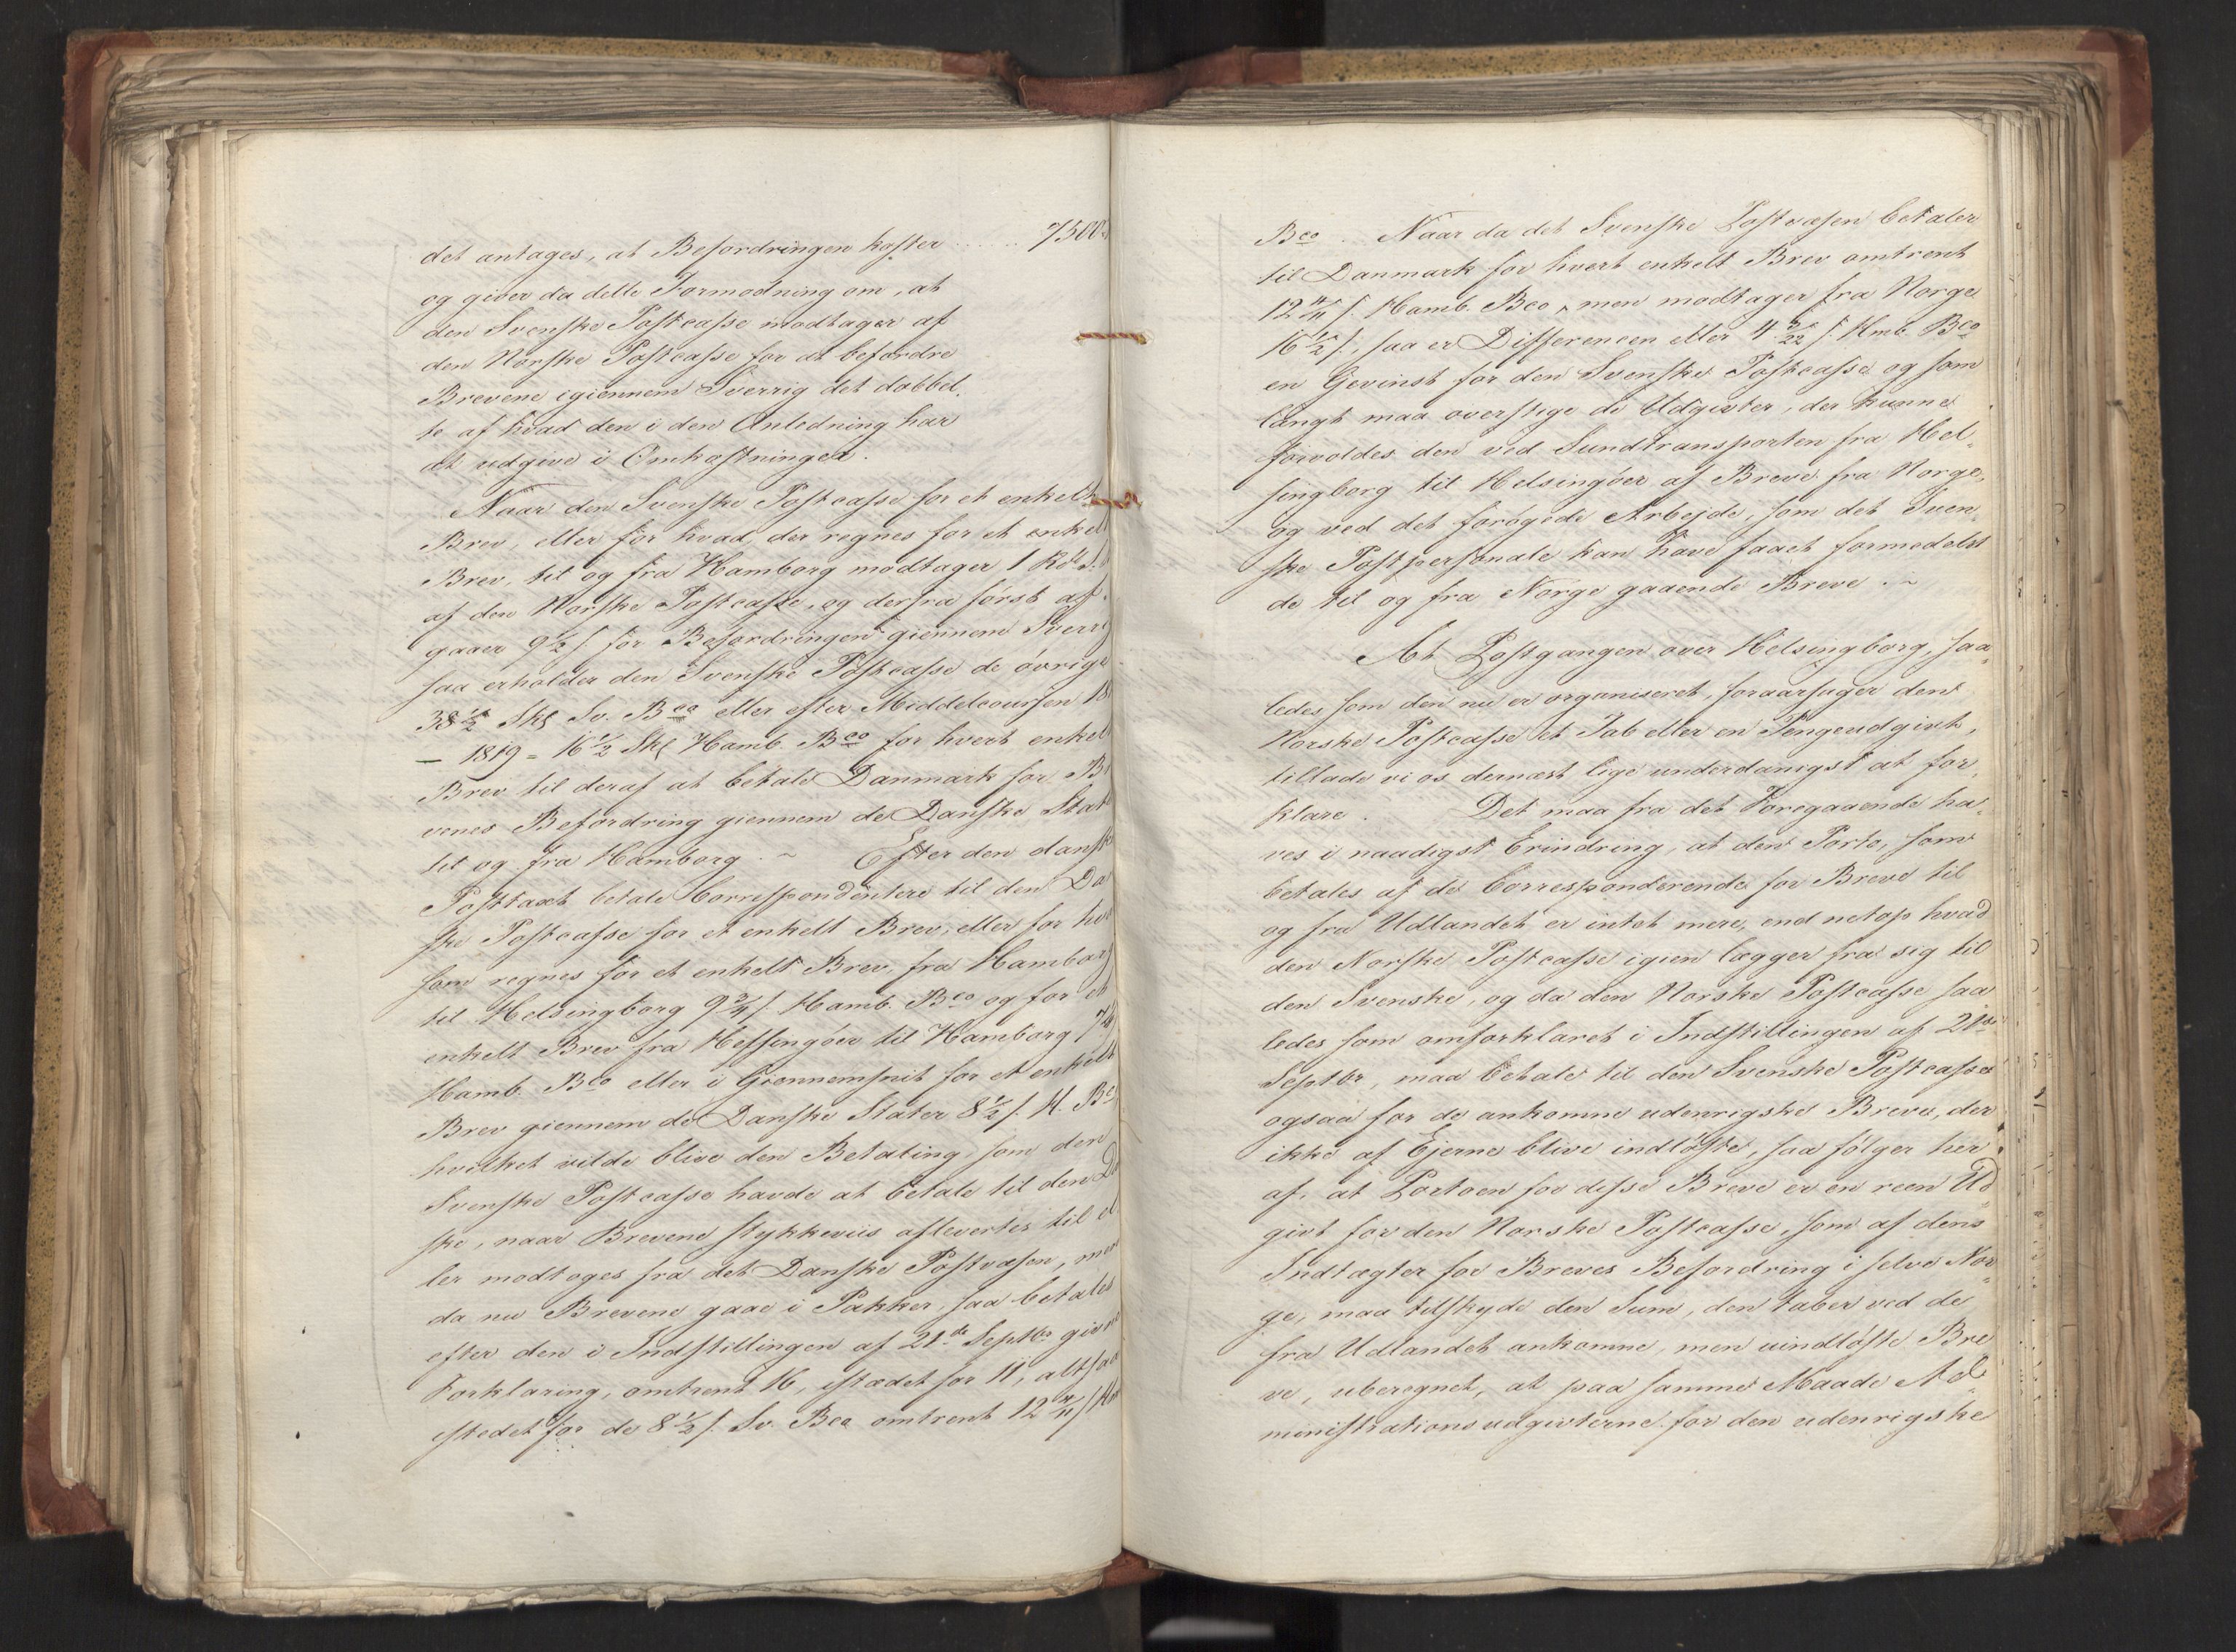 det antages, at Befordringen koster ..... 7500
og giver da dette Formodning om, at
den Svenske Postcasse modtager af
den Norske Postcasse for at befordre
Brevene igiennem Sverrig det dobbel-
te af hvad den i den Anledning har
at udgive i Omkostninger.
Naar den Svenske Postcasse for et enkelt
Brev, eller for hvad der regnes for et enkelt
Brev, til og fra Hamborg modtager 1 Rd
af den Norske Postcasse, og derfra først af-
gaaer 9½ s for Befordringen giennem Sverrig
saa erholder den Svenske Postcasse de øvrige
38½ Sk Sv. Bco eller efter Middelcoursen 18
— 1819 = 16½ Sk Hamb. Bco for hvert enkelt
Brev til deraf at betale Danmark for Bre
venes Befordring giennem de Danske Stater
til og fra Hamborg. ~ Efter den danske
Posttaxt betale Correspondentere til den Dan
ske Postcasse for et enkelt Brev, eller for hvad
som regnes for et enkelt Brev fra Hamborg
til Helsingborg 9¾ s. Hamb. Bco og for et
enkelt Brev fra Helsingøer til Hamborg 7¼
Hamb. Bco eller i Giennemsnit for et enkelt
Brev giennem de Danske Stater 8½ s. H. Bco
hvilket vilde blive den Betaling, som den
Svenske Postcasse havde at betale til den Da
ske, naar Brevene stykkeviis afleveres til el
ler modtoges fra det Danske Postvæsen, men
da nu Brevene gaae i Pakker, saa betales
efter den i Indstillingen af 21de Septbr givne
Forklaring, omtrent 16, istædet for 11, altsaa
istedet for de 8½ s. Sv. Bco omtrent 12 4/11 s Ham
Bco .. Naar da det Svenske Postvæsen betaler
til Danmark for hvert enkelt Brev omtrent
12 4/11 s. Hamb. Bco, men modtager fra Norge
16½ s., saa er Differencen eller 4 3/22 s. Hmb. Bco
en Gevinst for den Svenske Postcasse og som
langt maa overstige de Udgivter, der kunne
forvoldes den ved Sundtransporten fra Hel-
singborg til Helsingøer af Breve fra Norge,
og ved det forøgede Arbejde, som det Sven-
ske Postpersonale kan have faaet formedelst
de til og fra Norge gaaende Breve. ~
At Postgangen over Helsingborg, saa-
ledes som den nu er organiseret, foraarsager den
Norske Postcasse et Tab eller en Pengeudgivt,
tillade vi os dernæst lige underdanigst at for-
klare. Det maa fra det Foregaaende ha-
ves i naadigst Erindring, at den Porto, som
betales af de Corresponderende for Breve til
og fra Udlandet er intet mere, end netop hvad
den Norske Postcasse igien lægger fra sig til
den Svenske, og da den Norske Postcasse saa
ledes som omforklaret i Indstillingen af 21de
Septbr, maa betale til den Svenske Postcasse
ogsaa for de ankomne udenrigske Breve, der
ikke af Ejerne blive indløste, saa følger her
af, at Portoen for disse Breve er en reen Ud
givt for den Norske Postcasse, som af dens
Indtægter for Breves Befordring i selve Nor
ge, maa tilskyde den Sum, den taber ved de
fra Udlandet ankomne, men uindløste Bre
ve, uberegnet, at paa samme Maade Ad
ministrationsudgivterne for den udenrigske